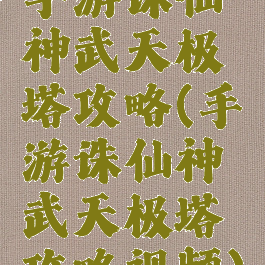 手游诛仙
神武天极
塔攻略(手
游诛仙神
武天极塔
攻略视频)